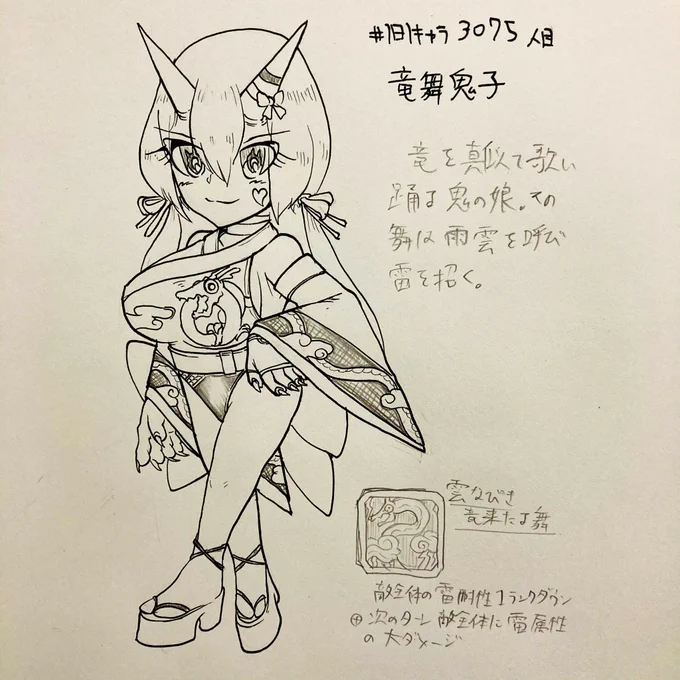 #1日1キャラ 3075人目
竜舞鬼子
竜を真似て歌い
踊る鬼の娘。その
舞は雨雲を呼び
雷を招く。
雲なびき
竜来たる舞
敵全体の雷耐性1ランクダウン
⊕次のターン敵全体に雷属性
の大ダメージ